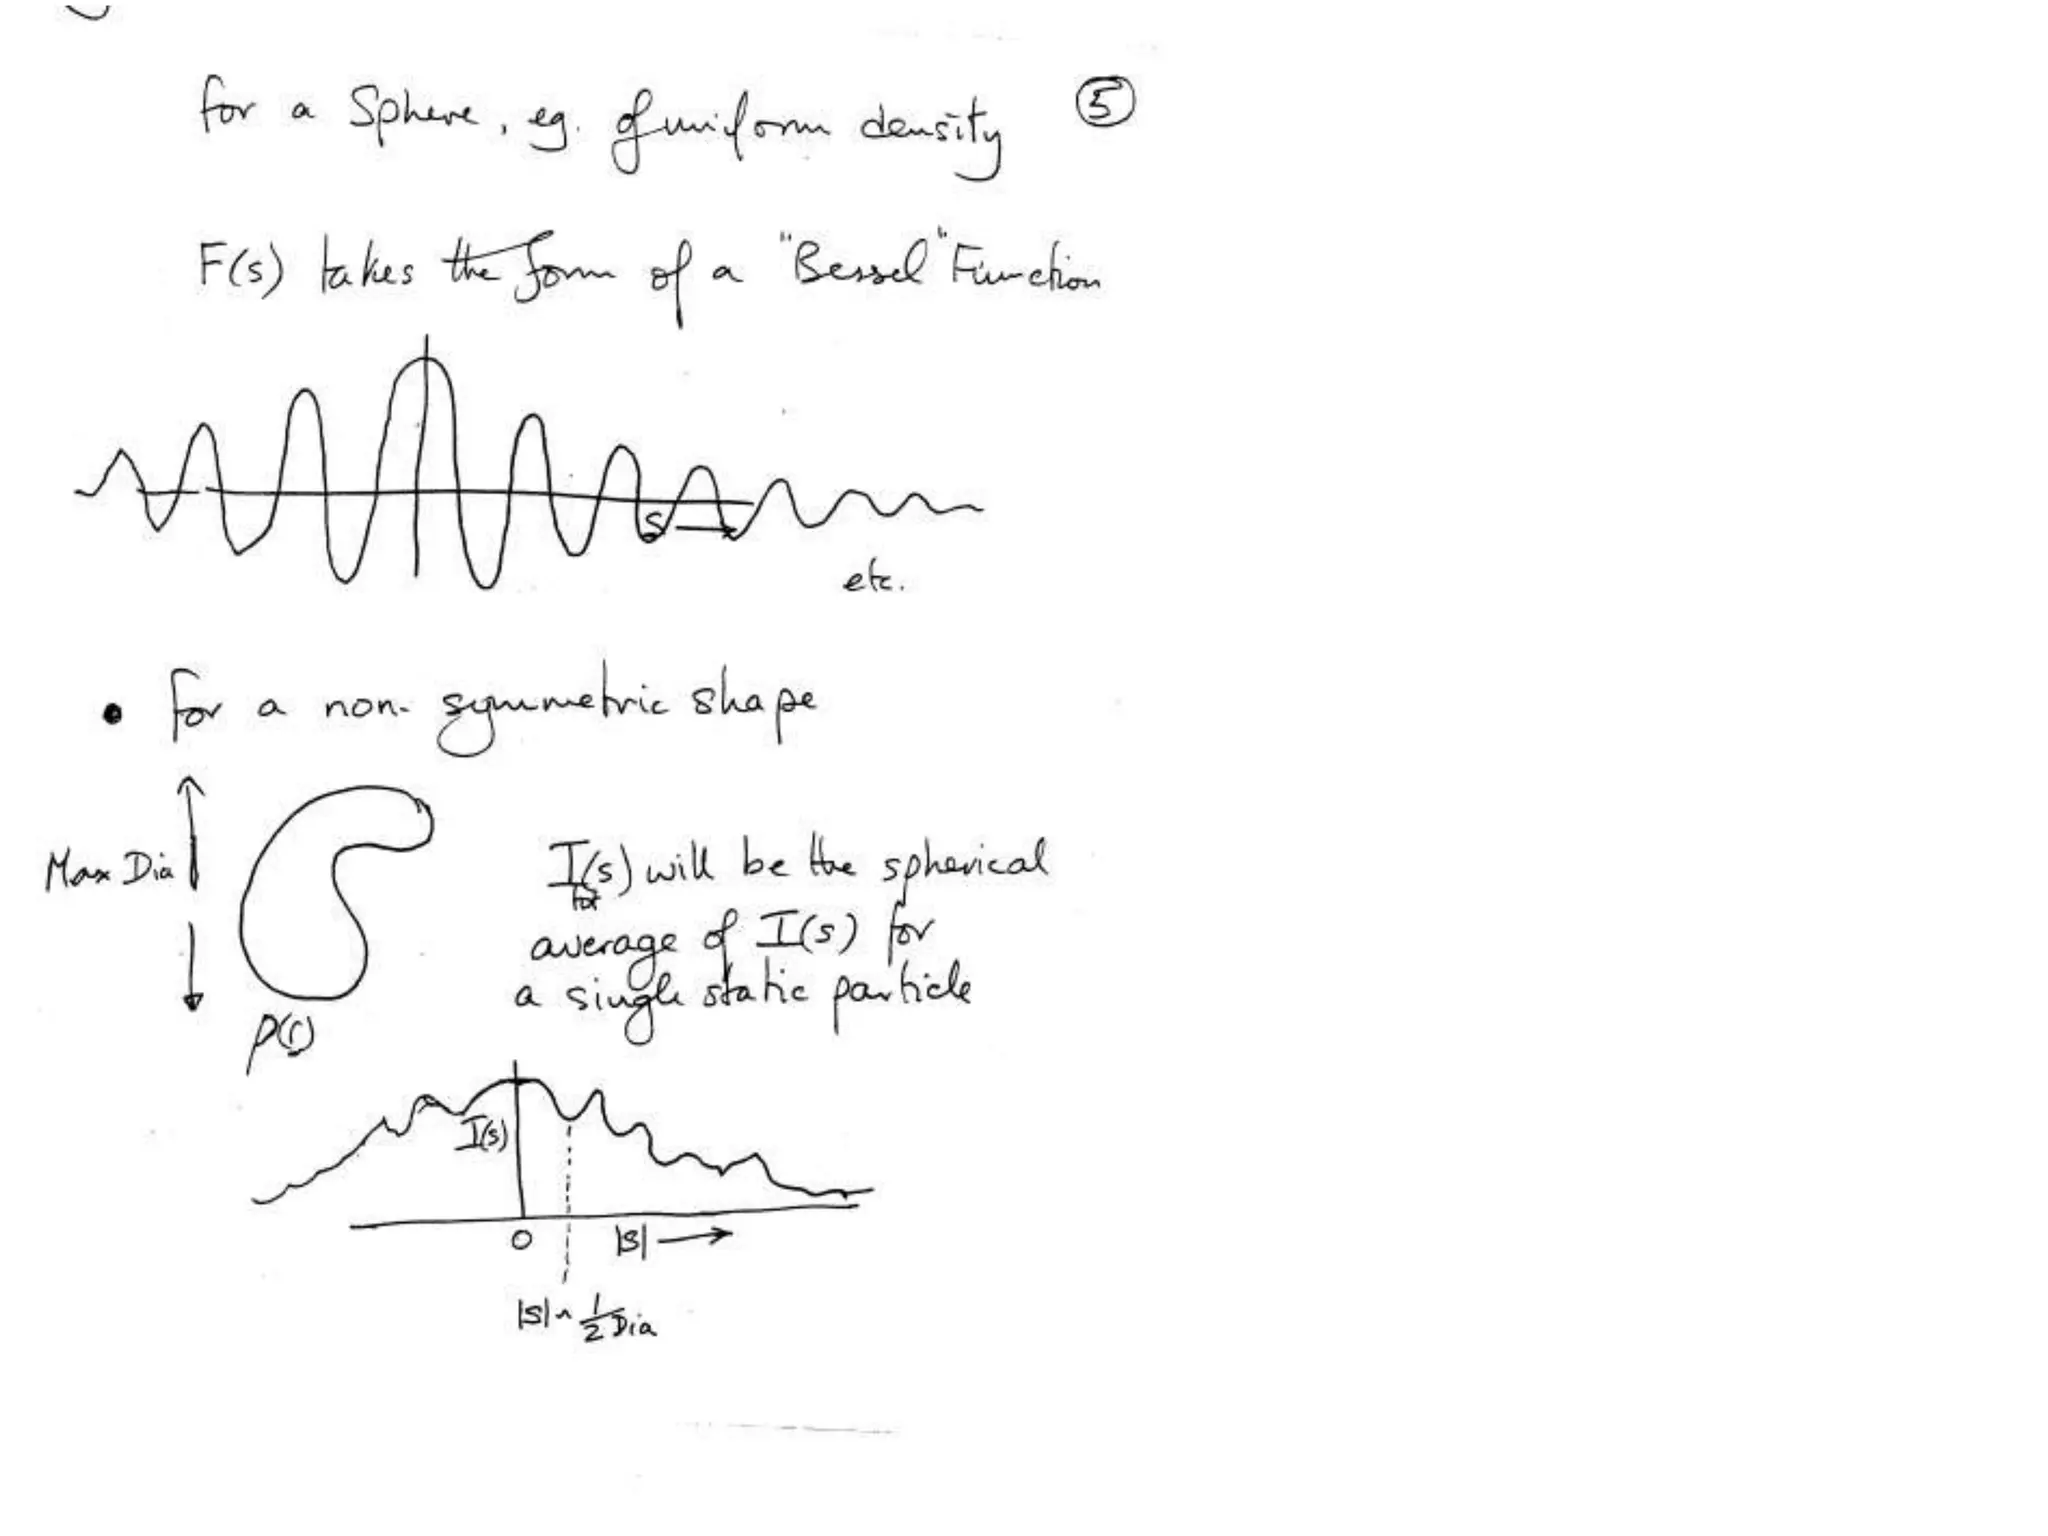 for a Sphere, eg. of uniform density
5
F(s) takes the form of a "Bessel" Function
s
etc.
• for a non-symmetric shape
Max Dia
I(s) will be the spherical
tot
average of I(s) for
a single static particle
ρ(r)
I(s)
0
|s|
|s| ~ 1/2 Dia